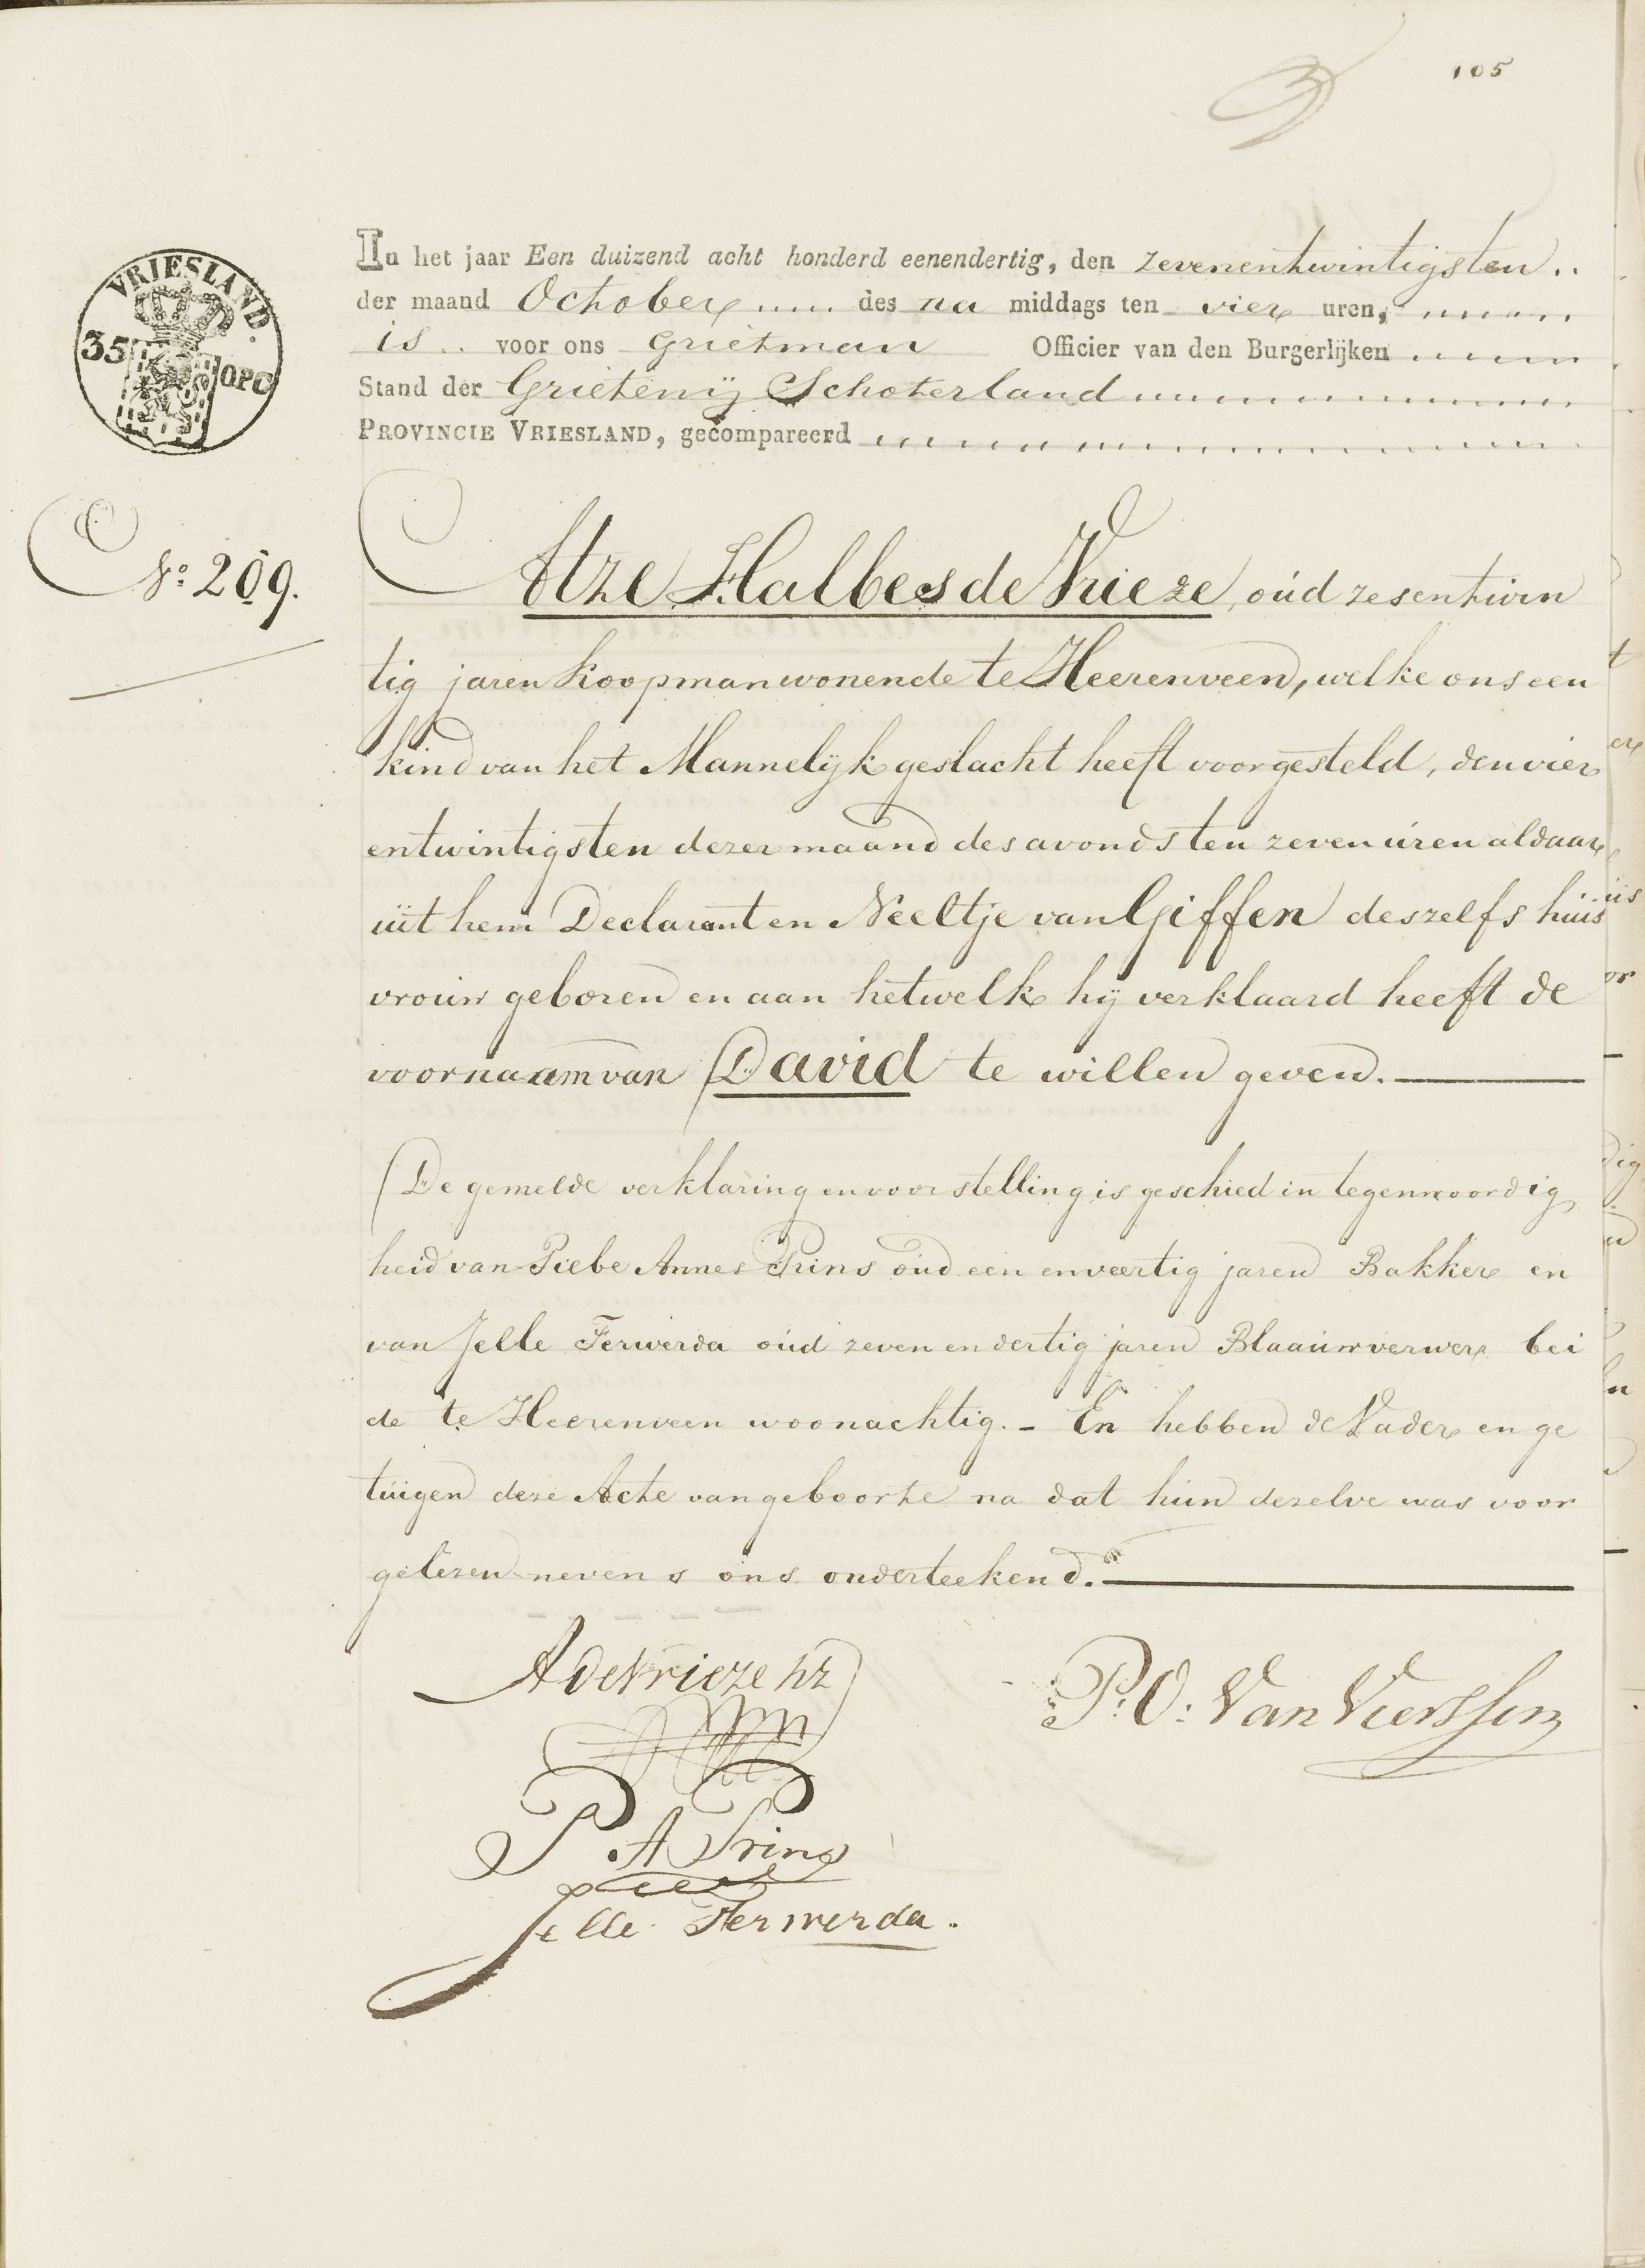 105
In het jaar Een duizend acht honderd eenendertig, den zevenentwintigsten
der maand October des na middags ten vier uren,
is voor ons Grietman Officier van den Burgerlijken
Stand der Grietenij Schoterland
PROVINCIE VRIESLAND, gecompareerd
VRIESLAND.
35
OPC
No: 209.
Atze Halbes de Vrieze, oud zesentwin
tig jaren Koopman wonende te Heerenveen, welke ons een
kind van het Mannelijk geslacht heeft voorgesteld, den vier
entwintigsten dezer maand des avonds ten zeven uren aldaar
uit hem Declarant en Neeltje van Giffen deszelfs huis
vrouw geboren en aan hetwelk hij verklaard heeft de
voornaam van David te willen geven.
De gemelde verklaring en voorstelling is geschied in tegenwoordig
heid van Piebe Annes Prins oud een en veertig jaren Bakker en
van Jelle Ferwerda oud zeven en dertig jaren Blaauwverwer bei
de te Heerenveen woonachtig. - En hebben de Vader en ge
tuigen deze Acte van geboorte na dat hun dezelve was voor
gelezen nevens ons onderteekend.
A de Vrieze hz
P: O: Van Vierssen
P. A Prins
Jelle Ferwerda.